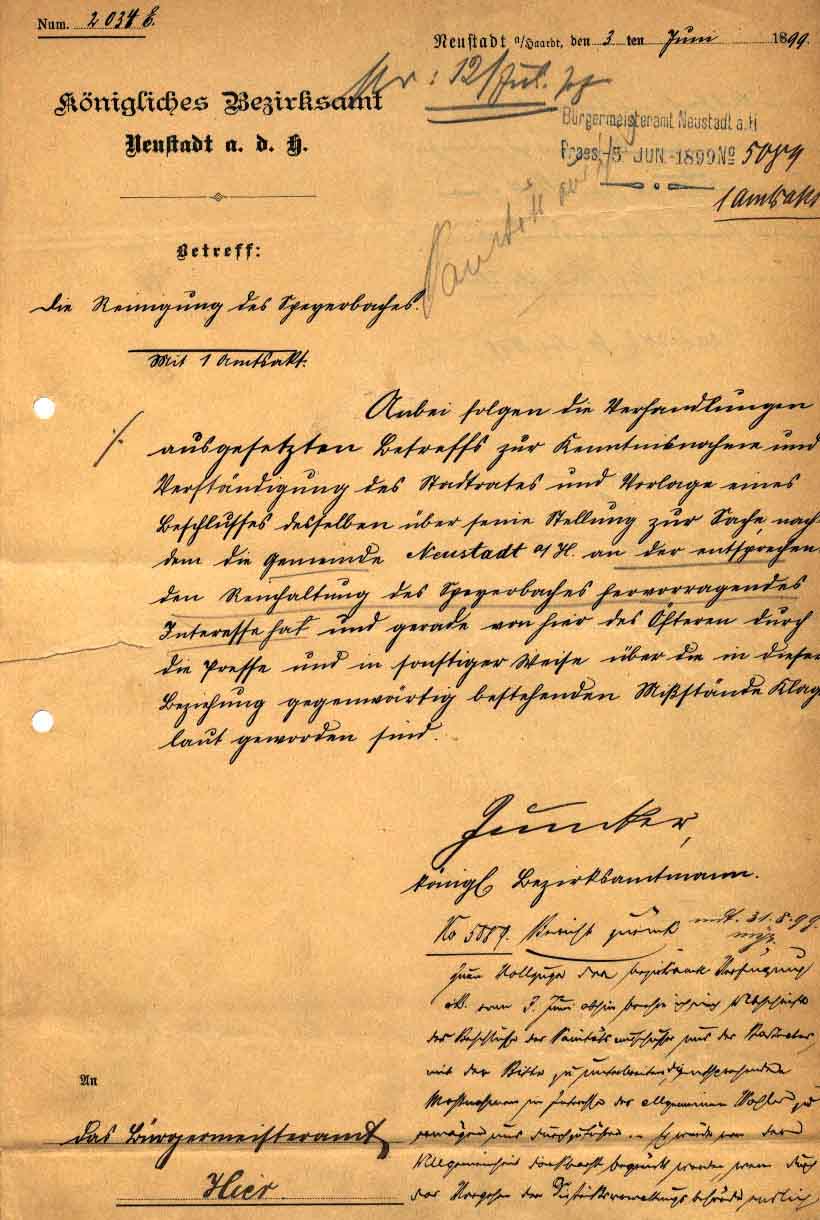 Num. 2034 E.
Neustadt a/Haardt, den 3 ten Juni 1899.
Königliches Bezirksamt
Neustadt a. d. H.
Bürgermeisteramt Neustadt a. H
Praes. -5 JUN. 1899 No 5089
1 Amtsakt
Betreff:
Die Reinigung des Speyerbaches.
Mit 1 Amtsakt.
Anbei folgen die Verhandlungen
ausgesetzten Betreffs zur Kenntnisnahme und
Verständigung des Stadtrates und Vorlage eines
Beschlusses desselben über seine Stellung zur Sache, nach-
dem die Gemeinde Neustadt a/H. an der entsprechen-
den Reinhaltung des Speyerbaches hervorragendes
Interesse hat und gerade von hier des Öfteren durch
die Presse und in sonstiger Weise über die in dieser
Beziehung gegenwärtig bestehenden Mißstände Klag
laut geworden sind.
Juncker,
königl Bezirksamtmann.
No 5089. Bericht zurück mit. 31.8.99.
zum Vollzuge der Verfügung
vom 3. Juni
des Beschlusses des und des Stadtrates
mit der Bitte zu entsprechende
Maßnahmen im Interesse des allgemeinen
und durchzuführen. Es würde von der
Allgemeinheit begrüßt werden, wenn durch
das Vorgehen der endlich
An
das Bürgermeisteramt
Hier.